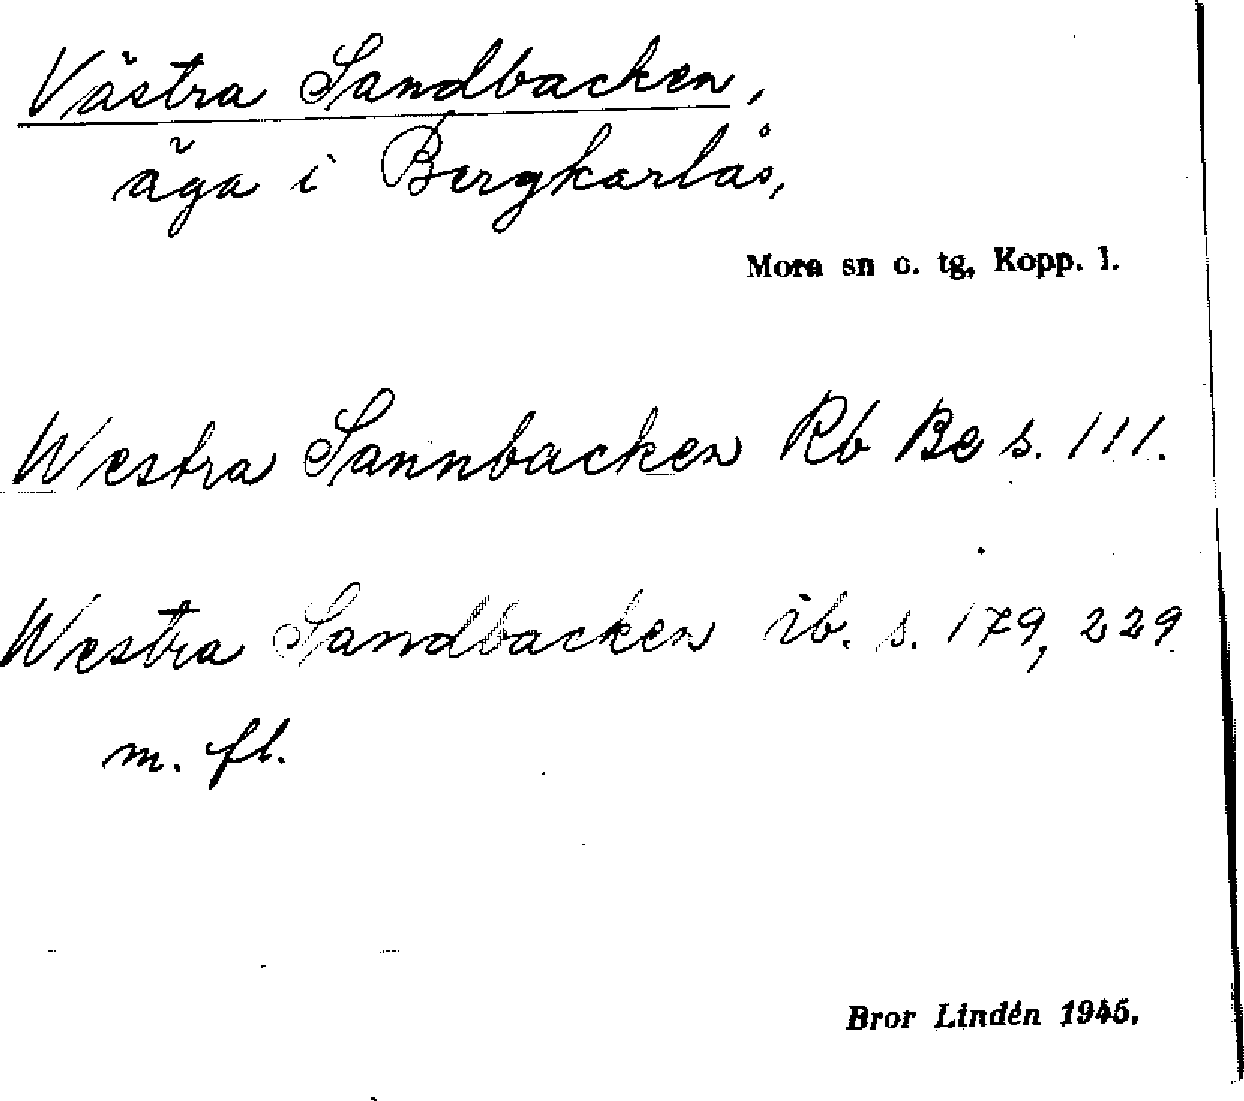 Västra Sandbacken,
äga i Bergkarlås,
Mora sn o. tg, Kopp. l.
Westra Sannbacken Rb Be s. 111.
Westra Sandbacken ib. s. 179, 229
m. fl.
Bror Lindén 1945.